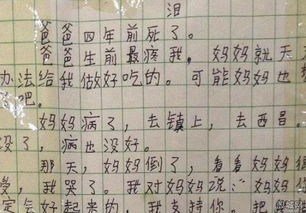 泪
爸爸四年前死了。
爸爸生前最疼我，妈妈就天
办法给我做好吃的。可能妈妈也
爸吧。
妈妈病了，去镇上，去西昌
没了，病也没好。
那天，妈妈倒了，看看妈妈很
受，我哭了。我对妈妈说：“妈妈你
定会好起来的，我支持你，把